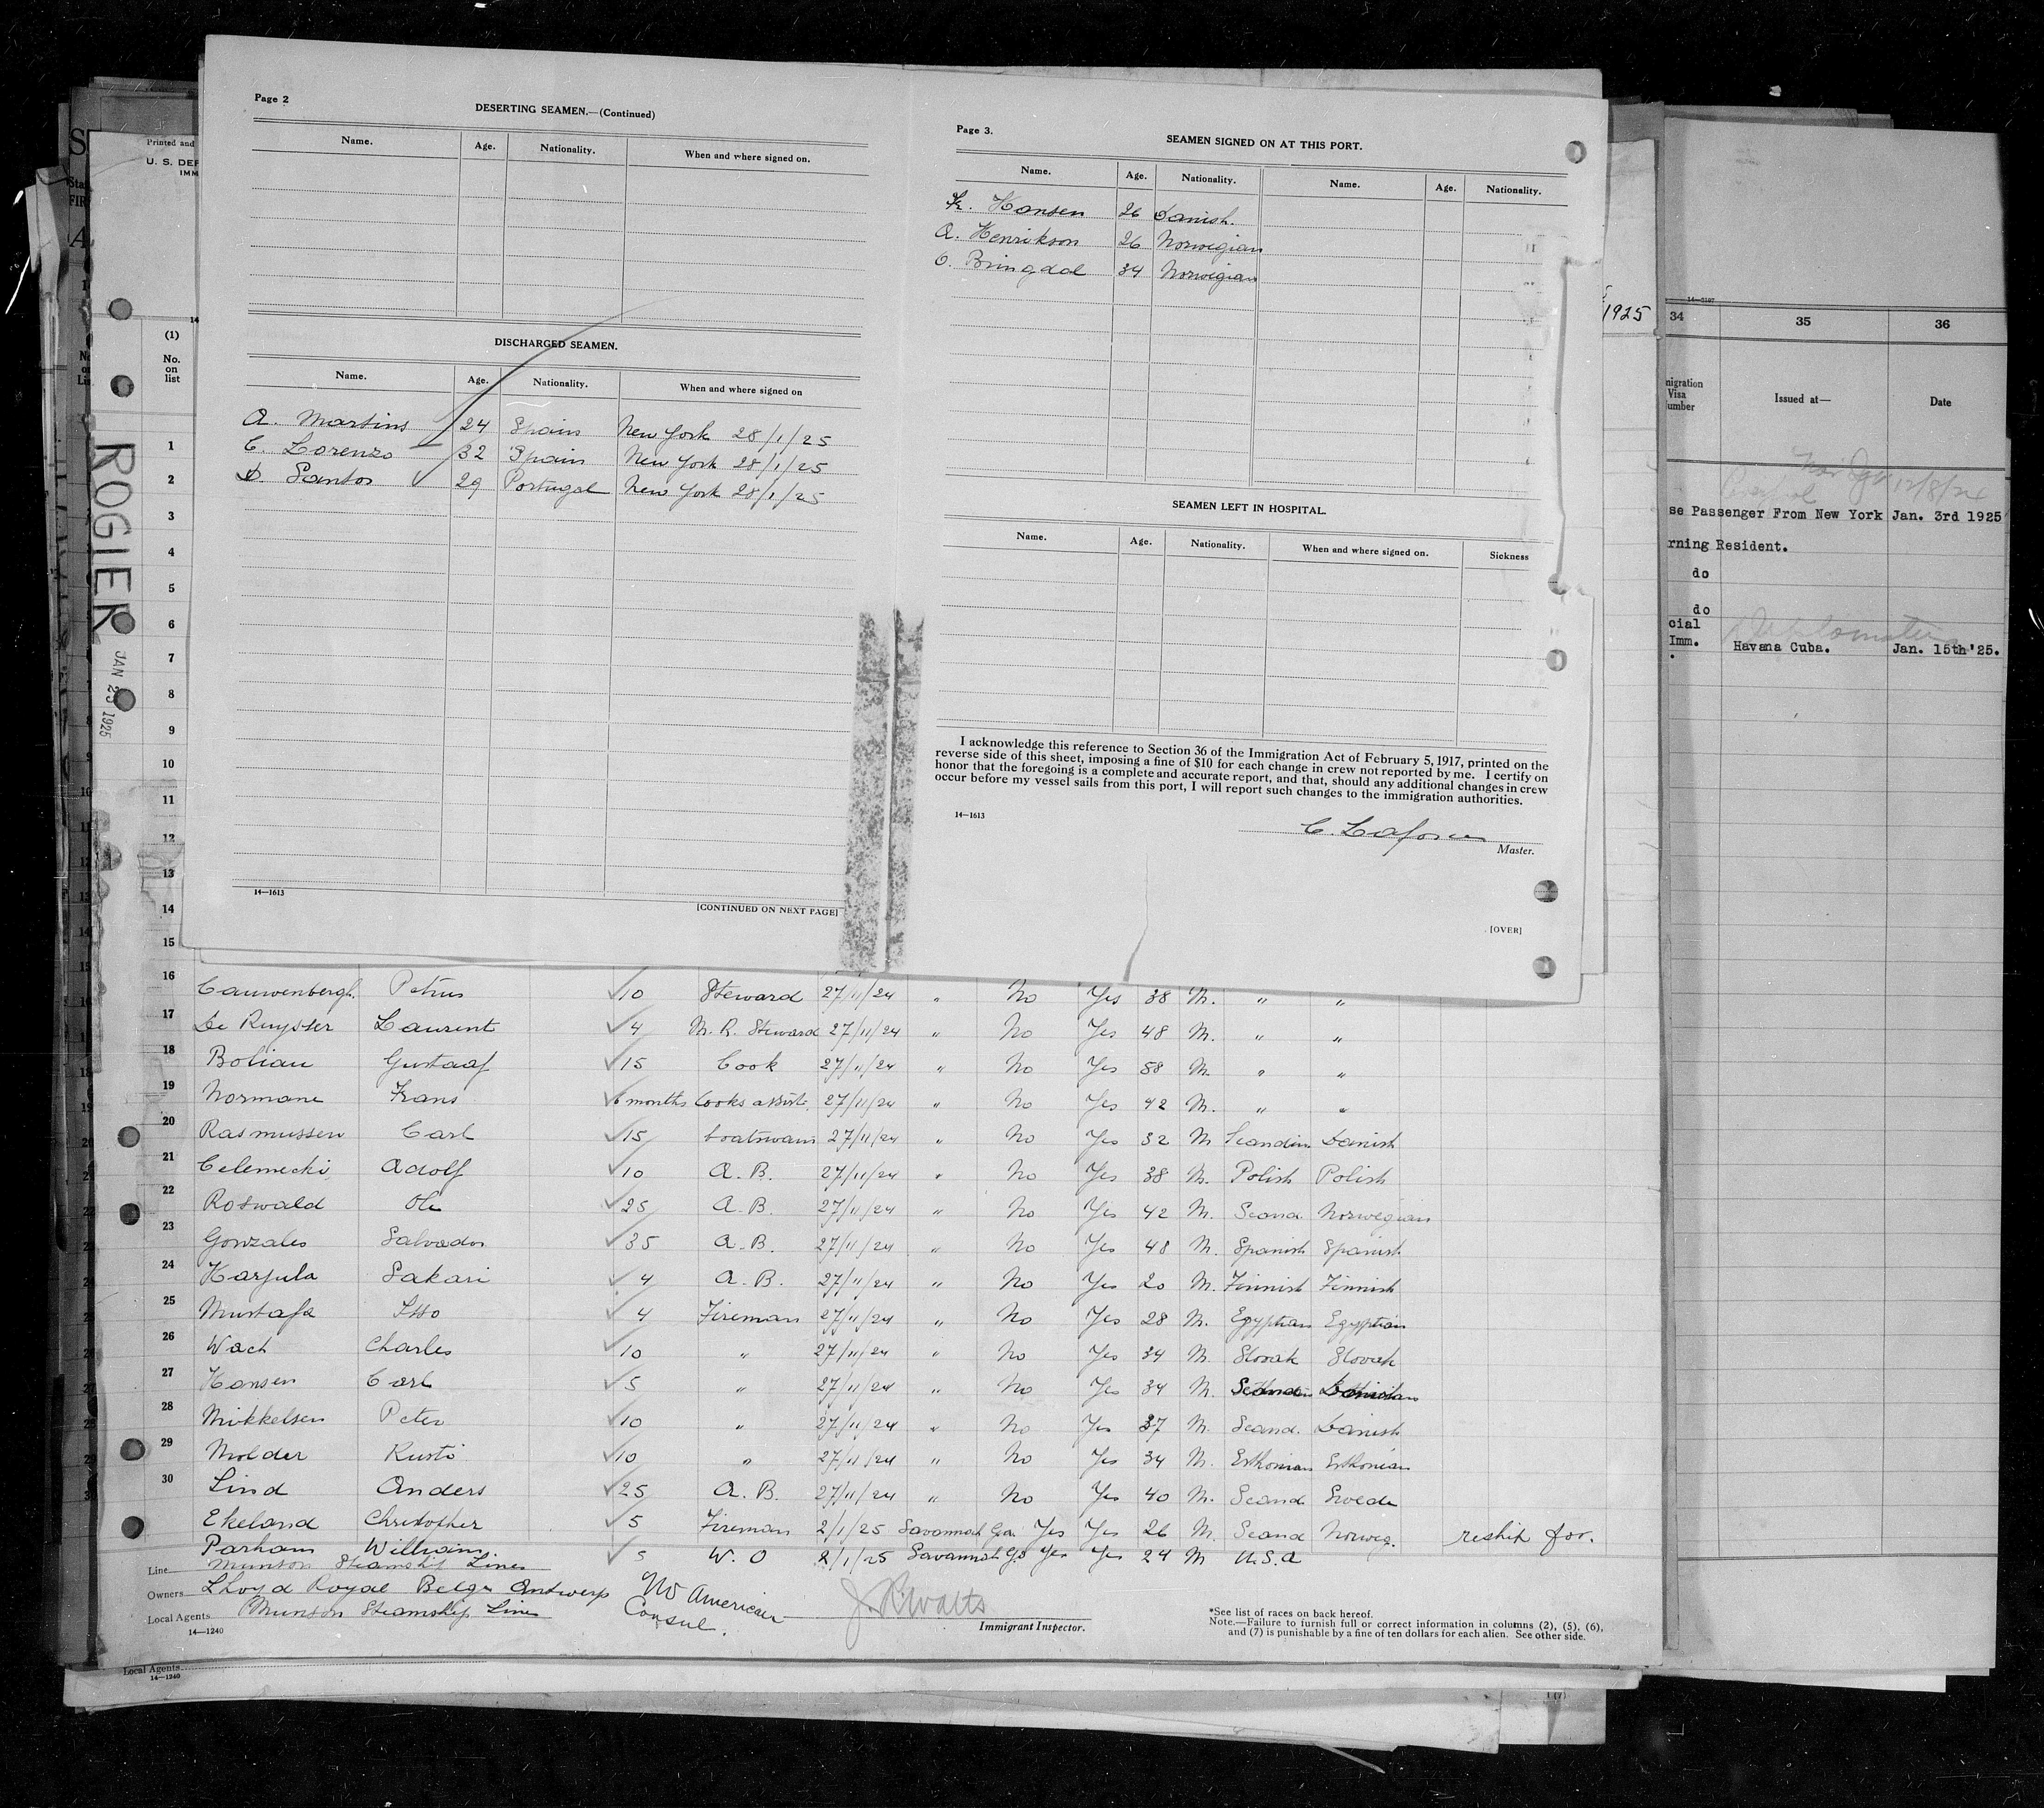 Page 2
DESERTING SEAMEN.—(Continued)
Name. Age. Nationality. When and where signed on.
DISCHARGED SEAMEN.
Name. Age. Nationality. When and where signed on
A. Martins 24 Spain New York 28/1/25
C. Lorenzo 32 Spain New York 28/1/25
D. Santos 29 Portugal New York 28/1/25
14—1613
[CONTINUED ON NEXT PAGE]
Page 3.
SEAMEN SIGNED ON AT THIS PORT.
Name. Age. Nationality. Name. Age. Nationality.
Hansen 26 Danish.
A. Henrikson 26 Norwegian
O. Bringdal 34 Norwegian
SEAMEN LEFT IN HOSPITAL.
Name. Age. Nationality. When and where signed on. Sickness
I acknowledge this reference to Section 36 of the Immigration Act of February 5, 1917, printed on the
reverse side of this sheet, imposing a fine of $10 for each change in crew not reported by me. I certify on
honor that the foregoing is a complete and accurate report, and that, should any additional changes in crew
occur before my vessel sails from this port, I will report such changes to the immigration authorities.
14—1613
Master.
[OVER]
Printed and
U. S. DEP
IMM
14
(1)
No.
on
list
ROGIER
JAN 23 1925
1
2
3
4
5
6
7
8
9
10
11
12
13
14
15
16 Cauwenbergh Petrus 10 Steward 27/11/24 " No Yes 38 M. " "
17 De Ruysser Laurent 4 M. R. Steward 27/11/24 " No Yes 48 M. " "
18 Boliau Gustaaf 15 Cook 27/11/24 " No Yes 58 M. " "
19 Normane Frans 6 months Cooks assist. 27/11/24 " No Yes 42 M. " "
20 Rasmussen Carl 15 boatswain 27/11/24 " No Yes 32 M Scandin Danish
21 Celemecki Adolf 10 A. B. 27/11/24 " No Yes 38 M. Polish Polish
22 Roswald Ole 25 A. B. 27/11/24 " No Yes 42 M. Scand Norwegian
23 Gonzales Salvador 35 A. B. 27/11/24 " No Yes 48 M. Spanish Spanish
24 Karjula Sakari 4 A. B. 27/11/24 " No Yes 20 M. Finnish Finnish
25 Mustafa 4 Fireman 27/11/24 " No Yes 28 M. Egyptian Egyptian
26 Wach Charles 10 " 27/11/24 " No Yes 34 M. Slovak Slovak
27 Hansen Carl 5 " 27/11/24 " No Yes 34 M.
28 Mikkelsen Peter 10 " 27/11/24 " No Yes 37 M. Scand. Danish
29 Molder Kusti 10 " 27/11/24 " No Yes 34 M. Esthonian Esthonian
30 Lind Anders 25 A. B. 27/11/24 " No Yes 40 M. Scand Swede
Ekeland Christopher 5 Fireman 2/1/25 Savannah Ga. Yes Yes 26 M. Scand Norweg. reship for.
Parham William 5 W. O 2/1/25 Savannah Ga Yes Yes 24 M U.S.A
Line Munson Steamship Lines
Owners Lloyd Royal Belge Antwerp
Local Agents Munson Steamship Line
14—1240
No American
Consul.
Immigrant Inspector.
*See list of races on back hereof.
Note.—Failure to furnish full or correct information in columns (2), (5), (6),
and (7) is punishable by a fine of ten dollars for each alien. See other side.
Local Agents
14—1240
1925
14—3197
34 35 36
migration
Visa
umber
Issued at—
Date
12/8/24
se Passenger From New York Jan. 3rd 1925
rning Resident.
do
do
cial
Imm.
Havana Cuba. Jan. 15th '25.